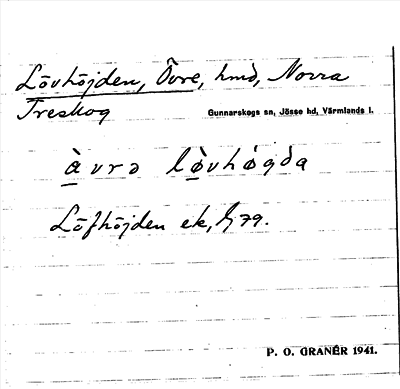 Lövhöjden, Övre, hmd, Norra
Treskog
Gunnarskogs sn, Jösse hd, Värmlands l.
àvrə lø̀vhǿgda
Löfhöjden ek, G79.
P. O. GRANÉR 1941.